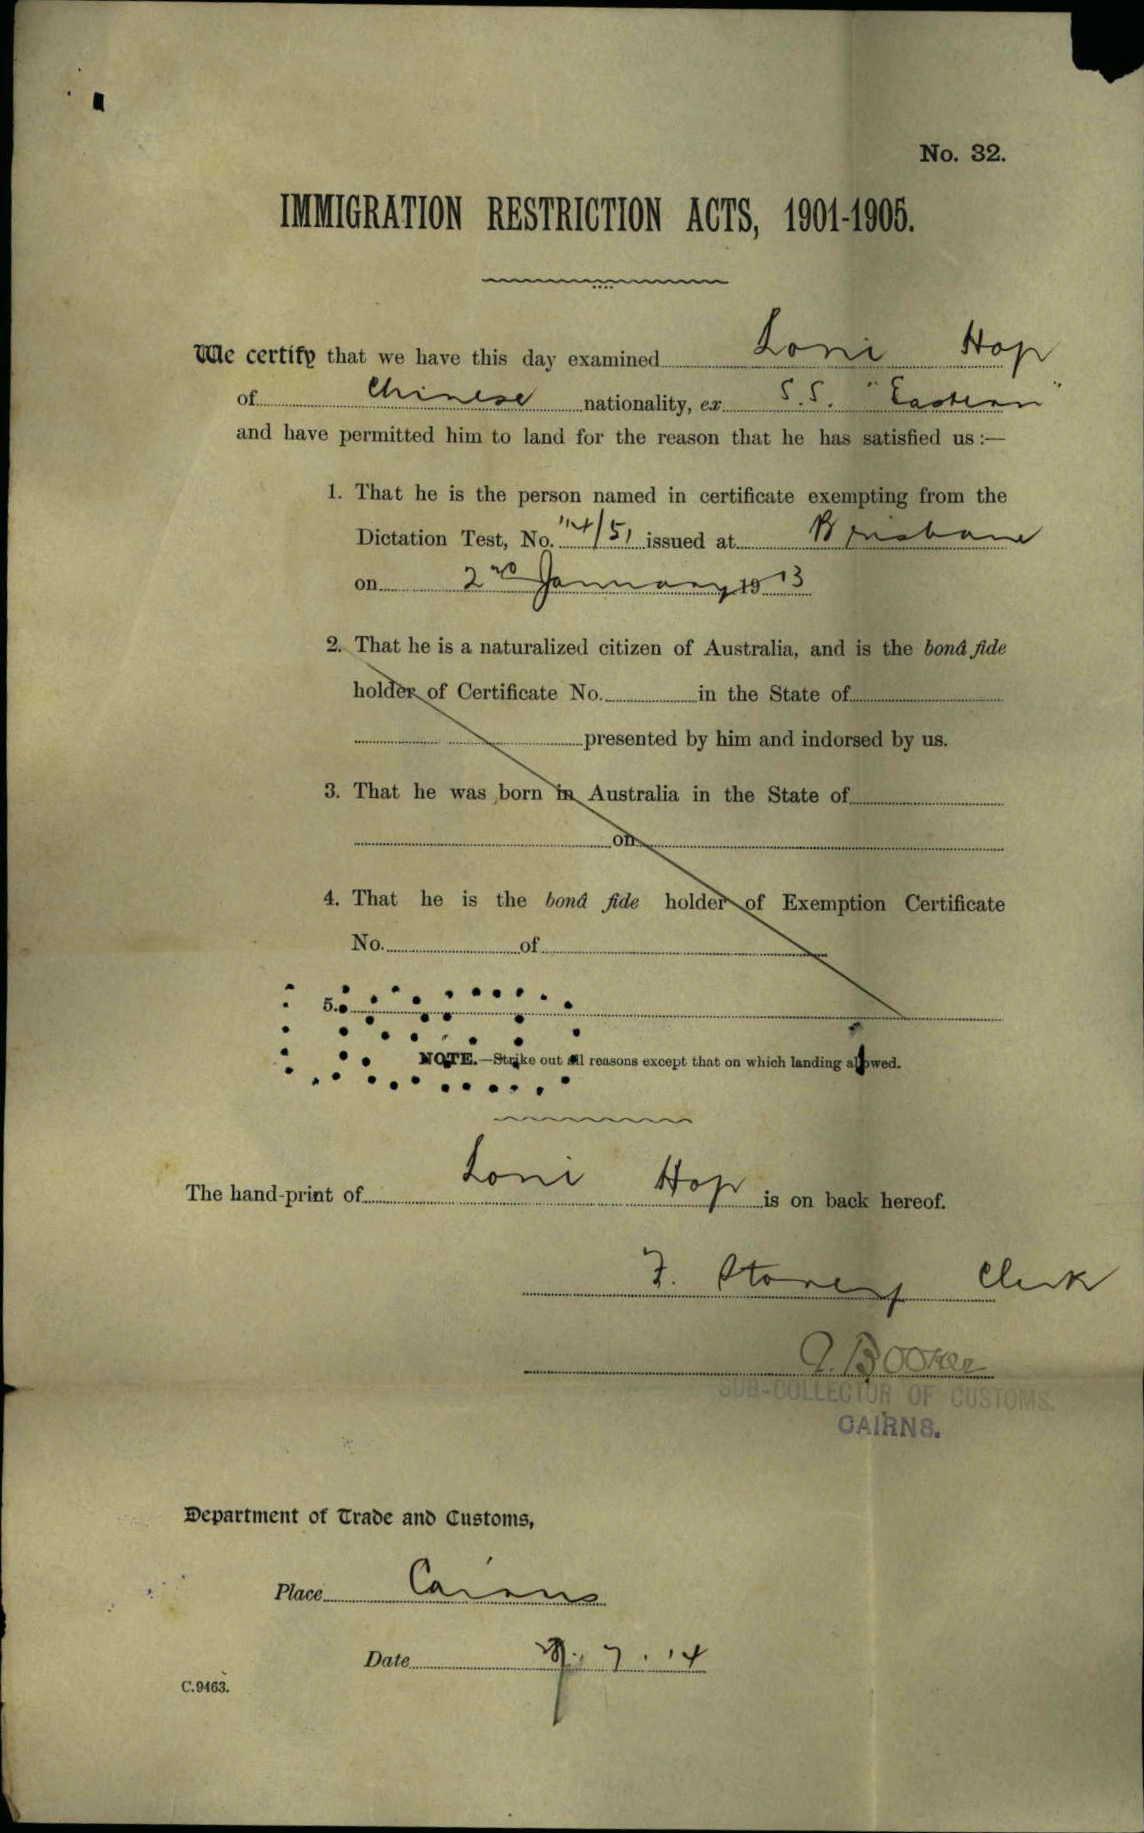 No. 32.
IMMIGRATION RESTRICTION ACTS, 1901-1905.
We certify that we have this day examined Loni Hop
of Chinese nationality, ex S.S. "Eastern"
and have permitted him to land for the reason that he has satisfied us :—
1. That he is the person named in certificate exempting from the
Dictation Test, No. issued at Brisbane
on 2nd January 1913
2. That he is a naturalized citizen of Australia, and is the bonâ fide
holder of Certificate No. in the State of
presented by him and indorsed by us.
3. That he was born in Australia in the State of
on
4. That he is the bonâ fide holder of Exemption Certificate
No. of
5.
NOTE.—Strike out all reasons except that on which landing allowed.
The hand-print of Loni Hop is on back hereof.
F. Clerk
SUB-COLLECTOR OF CUSTOMS.
CAIRNS.
Department of Trade and Customs,
Place Cairns
Date 7. 14
C.9463.